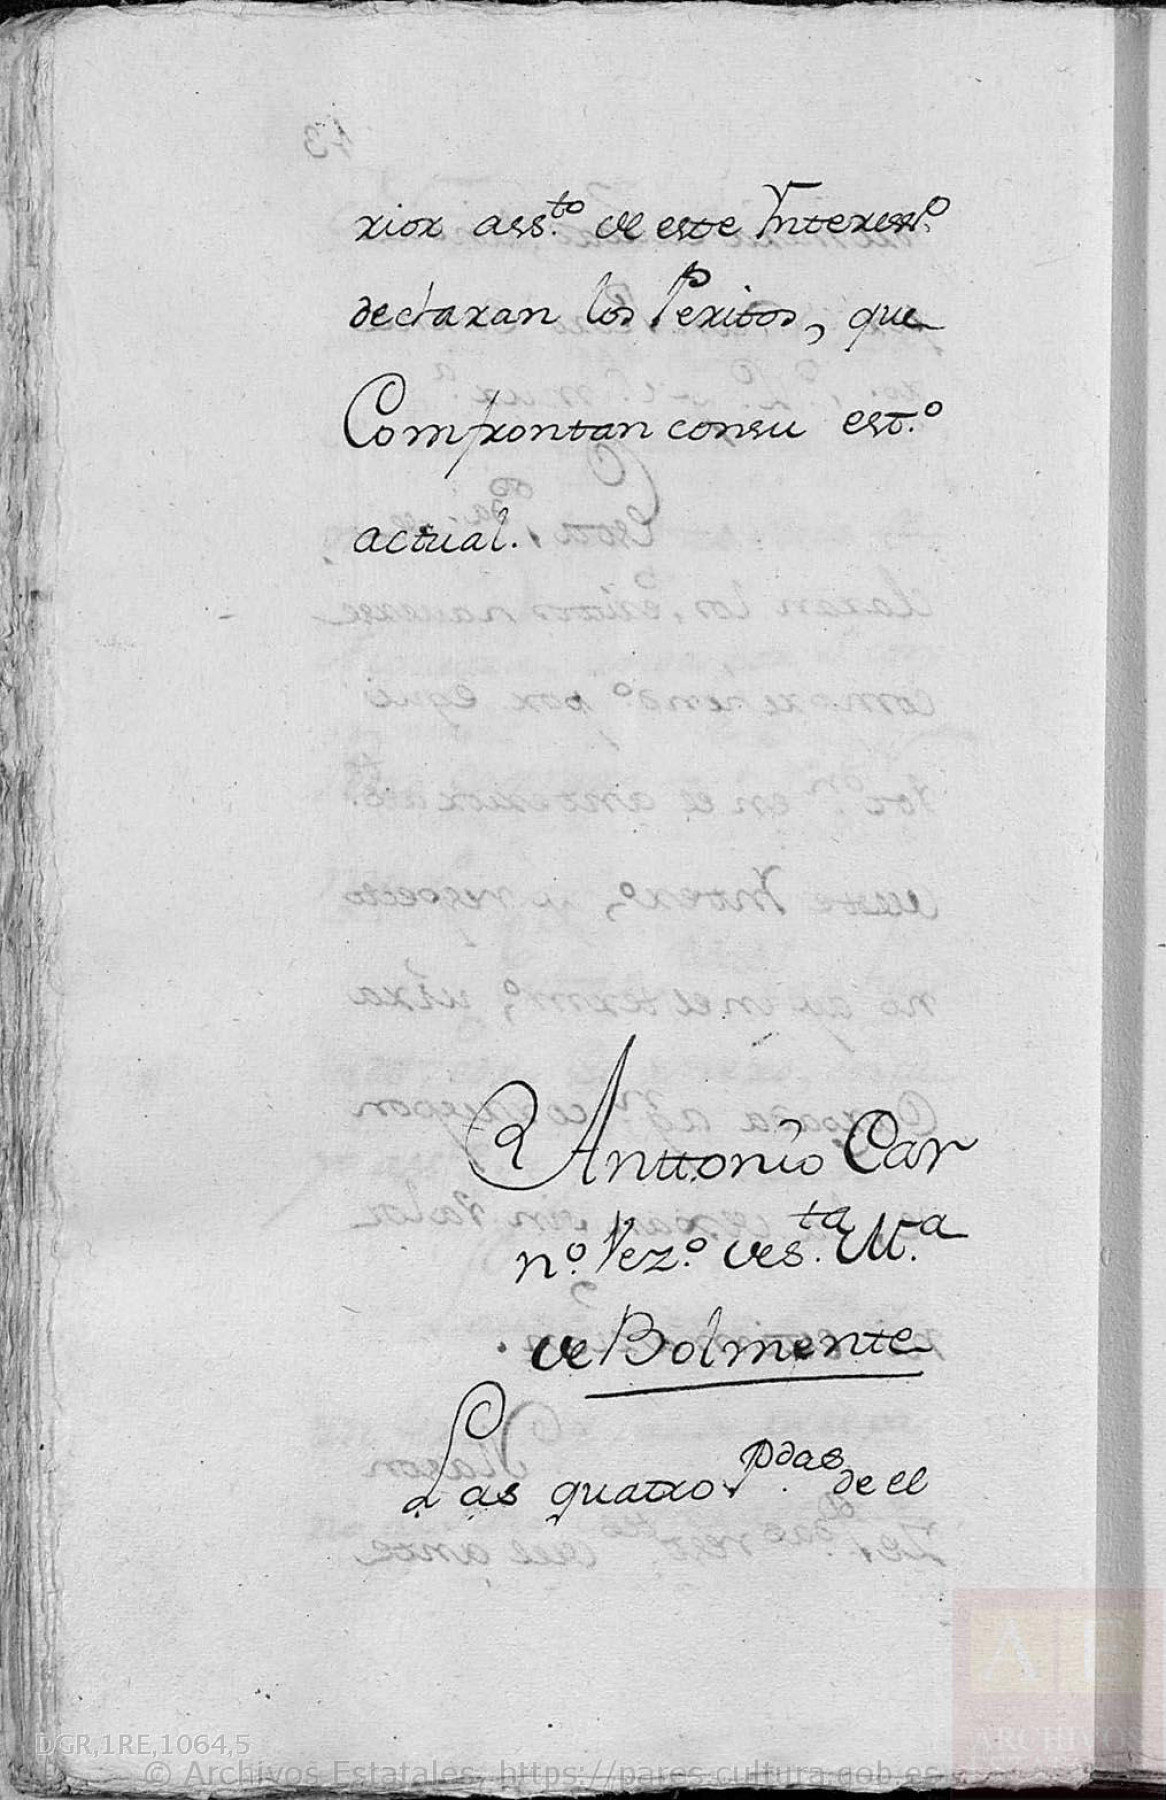 rior ass.to de este Ynteress.o
declaran los Peritos, que
Comfrontan consu est.o
actual.
Anttonio Car
n.o Vez.o des.ta Vª
de Bolmente
Las quatro P.das de el
DGR,1RE,1064,5
© Archivos Estatales, https://pares.cultura.gob.es
AE
ARCHIVOS